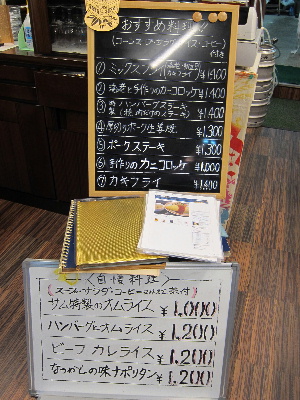 おすすめ料理
① ミックスフライ ¥1,400
② 海老と手作りのカニコロッケ ¥1,400
③ ハンバーグステーキ ¥1,400
④ 厚切りポーク生姜焼 ¥1,300
⑤ ポークステーキ ¥1,300
⑥ 手作りのカニコロッケ ¥1,000
⑦ カキフライ ¥1,400
自慢料理
(スープ・サラダ・コーヒー
サム特製のオムライス ¥1,000
ハンバーグとオムライス ¥1,200
ビーフカレライス ¥1,200
なつかしの味ナポリタン ¥1,200